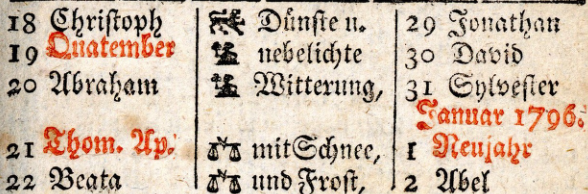 18 Christoph
19 Quatember
20 Abraham
21 Thom. Ap.
22 Beata
Dünste u.
nebelichte
Witterung,
mit Schnee,
und Frost,
29 Jonathan
30 David
31 Sylvester
Januar 1796.
1 Neujahr
2 Abel